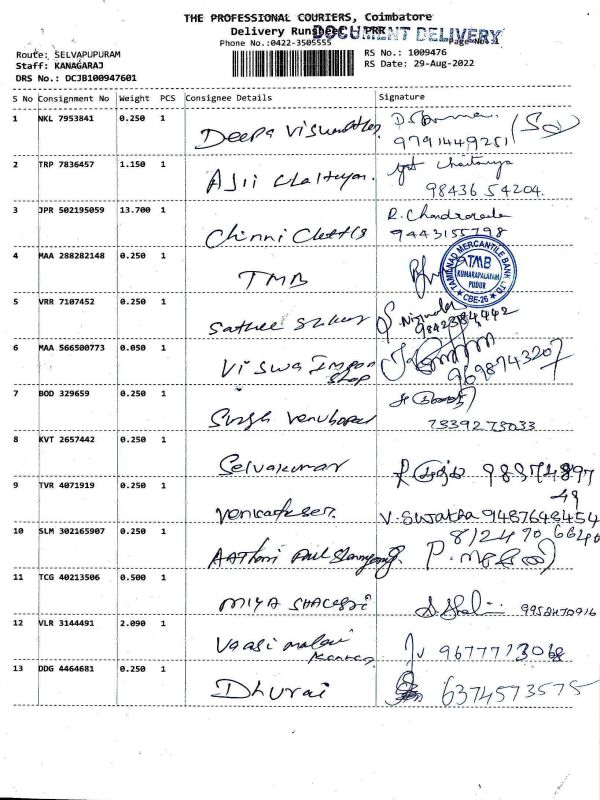 THE PROFESSIONAL COURIERS, Coimbatore
Delivery Runsheet PRR
DOCUMENT DELIVERY
Phone No.:0422-3505555
Page No: 1
Route: SELVAPUPURAM
Staff: KANAGARAJ
DRS No.: DCJB100947601
RS No.: 1009476
RS Date: 29-Aug-2022
S No Consignment No Weight PCS Consignee Details Signature
1 NKL 7953841 0.250 1 Deepa
9791449251
2 TRP 7836457 1.150 1 Chaitanya
98436 54204.
3 JPR 502195059 13.700 1 Chinni Chettis R. Chandra
9443155798
4 MAA 288282148 0.250 1 TMB
TAMILNAD MERCANTILE BANK LTD.
TMB
KUMARAPALAYAM
PUDUR
CBE-26
5 VRR 7107452 0.250 1
6 MAA 566500773 0.050 1 Viswa Impon
Shop
9698743207
7 BOD 329659 0.250 1 Singh Venuhopal
7339273033
8 KVT 2657442 0.250 1 Selvakumar 98974897
49
9 TVR 4071919 0.250 1 V. Swatha 9487648454
10 SLM 302165907 0.250 1 8124706640
11 TCG 40213506 0.500 1 MIYA 9952470916
12 VLR 3144491 2.090 1 Vaasi malai
Kannan
9677773068
13 DDG 4464681 0.250 1 Dhurai 6374573575